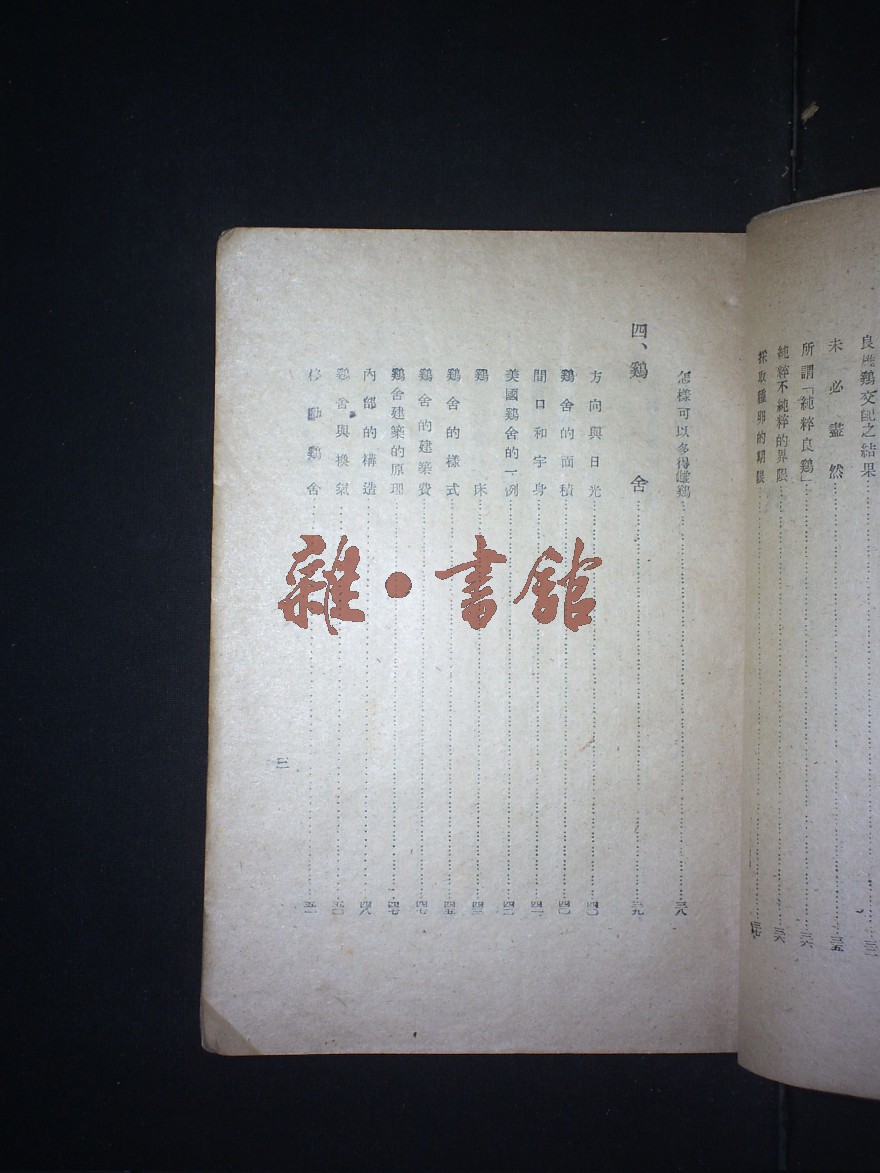 良雄鷄交配之結果
未必盡然……三五
所謂「純粹良鷄」……三六
純粹不純粹的界限……三六
採取種卵的期限……三七
怎樣可以多得雌鷄……三八
四、鷄舍……三九
方向與日光……四〇
鷄舍的面積……四〇
間口和宇身……四一
美國鷄舍的一例
鷄床
鷄舍的樣式……四五
鷄舍的建築費……四七
鷄舍建築的原理……四七
內部的構造……四八
鷄舍與換氣
移動鷄舍
三
雜·書館